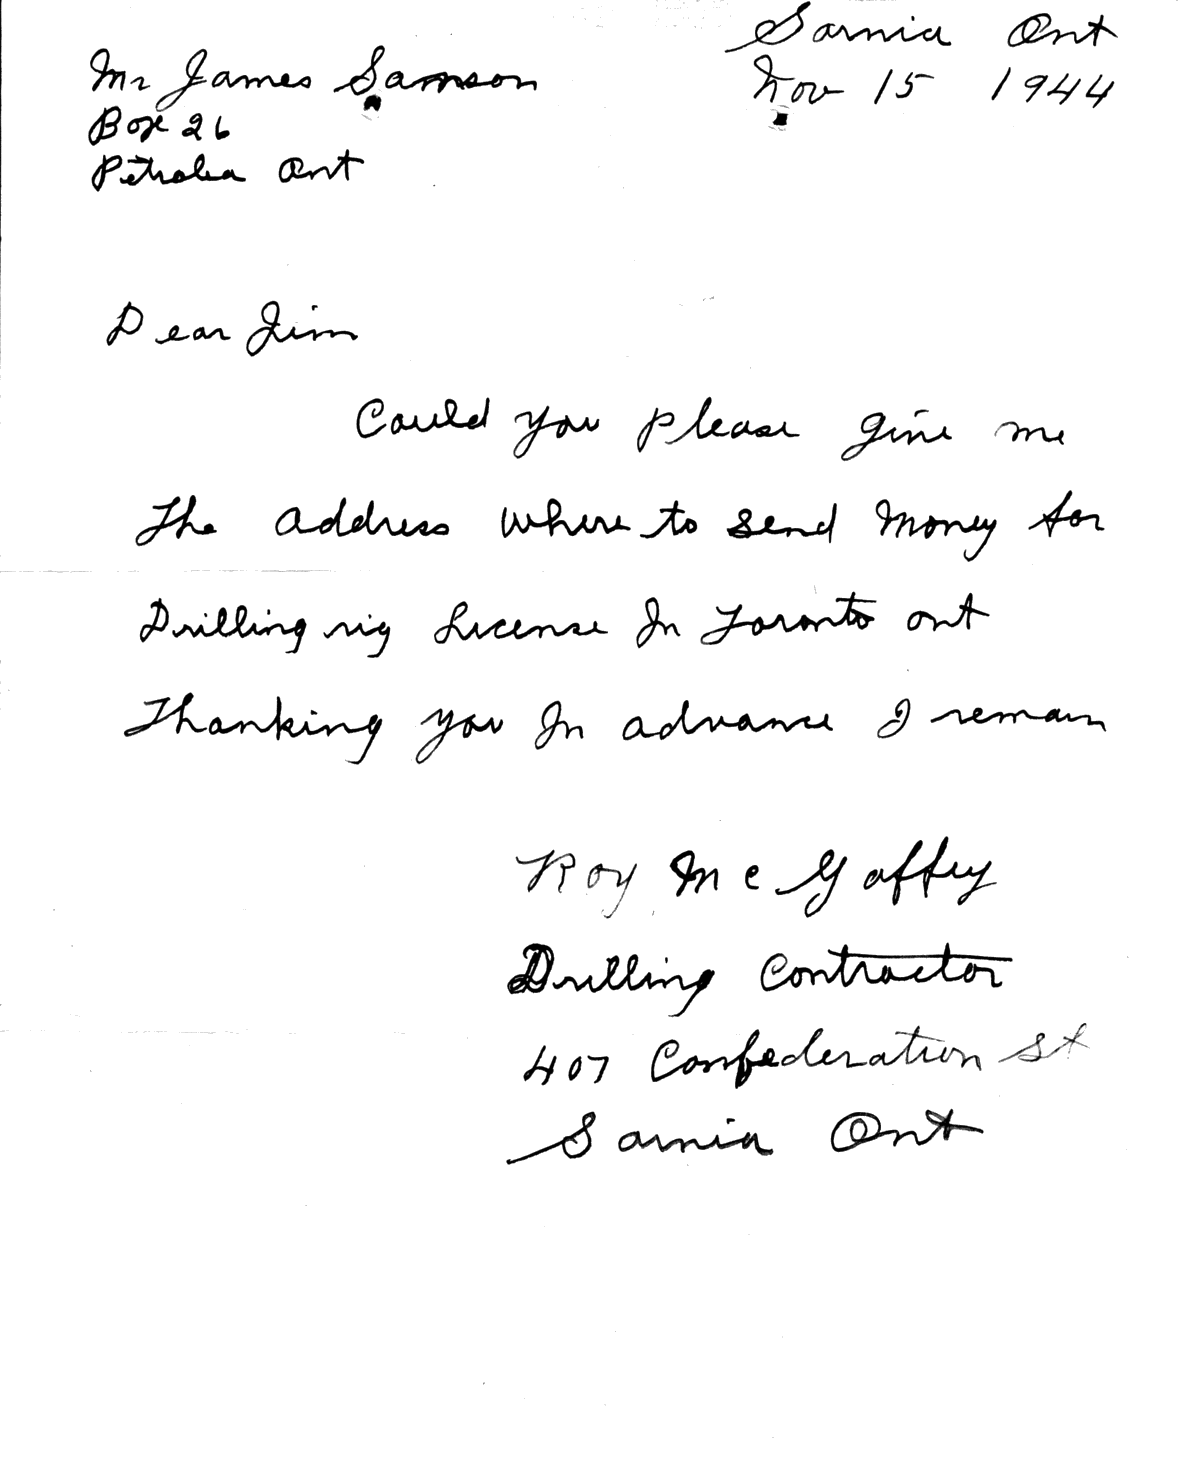 Sarnia Ont
Nov 15 1944
Mr James Samson
Box 26
Petrolia Ont
Dear Jim
Could you please give me
The address where to send money for
Drilling rig License In Toronto ont
Thanking you In advance I remain
Roy McGaffey
Drilling Contractor
407 Confederation St
Sarnia Ont